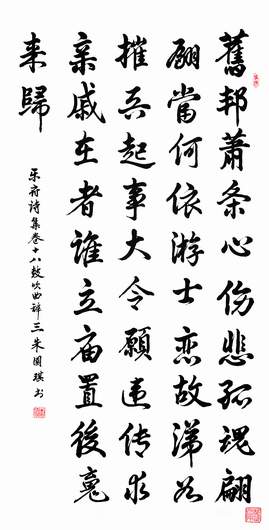 舊邦蕭条心伤悲孤魂翩
翩當何依游士恋故涕如
摧兵起事大令願違传求
亲戚在者誰立庙置後魂
来歸
乐府詩集卷十八鼓吹曲辞三朱國琪书